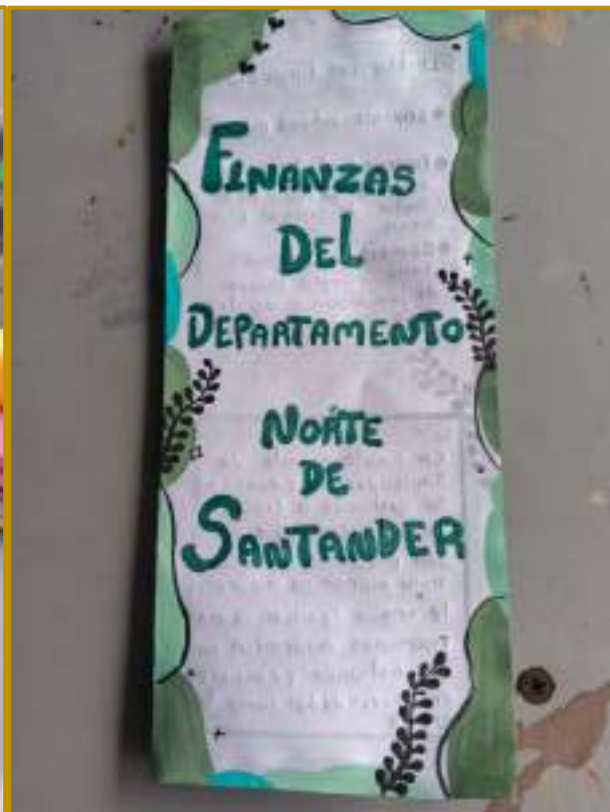 FINANZAS
DEL
DEPARTAMENTO
NORTE
DE
SANTANDER